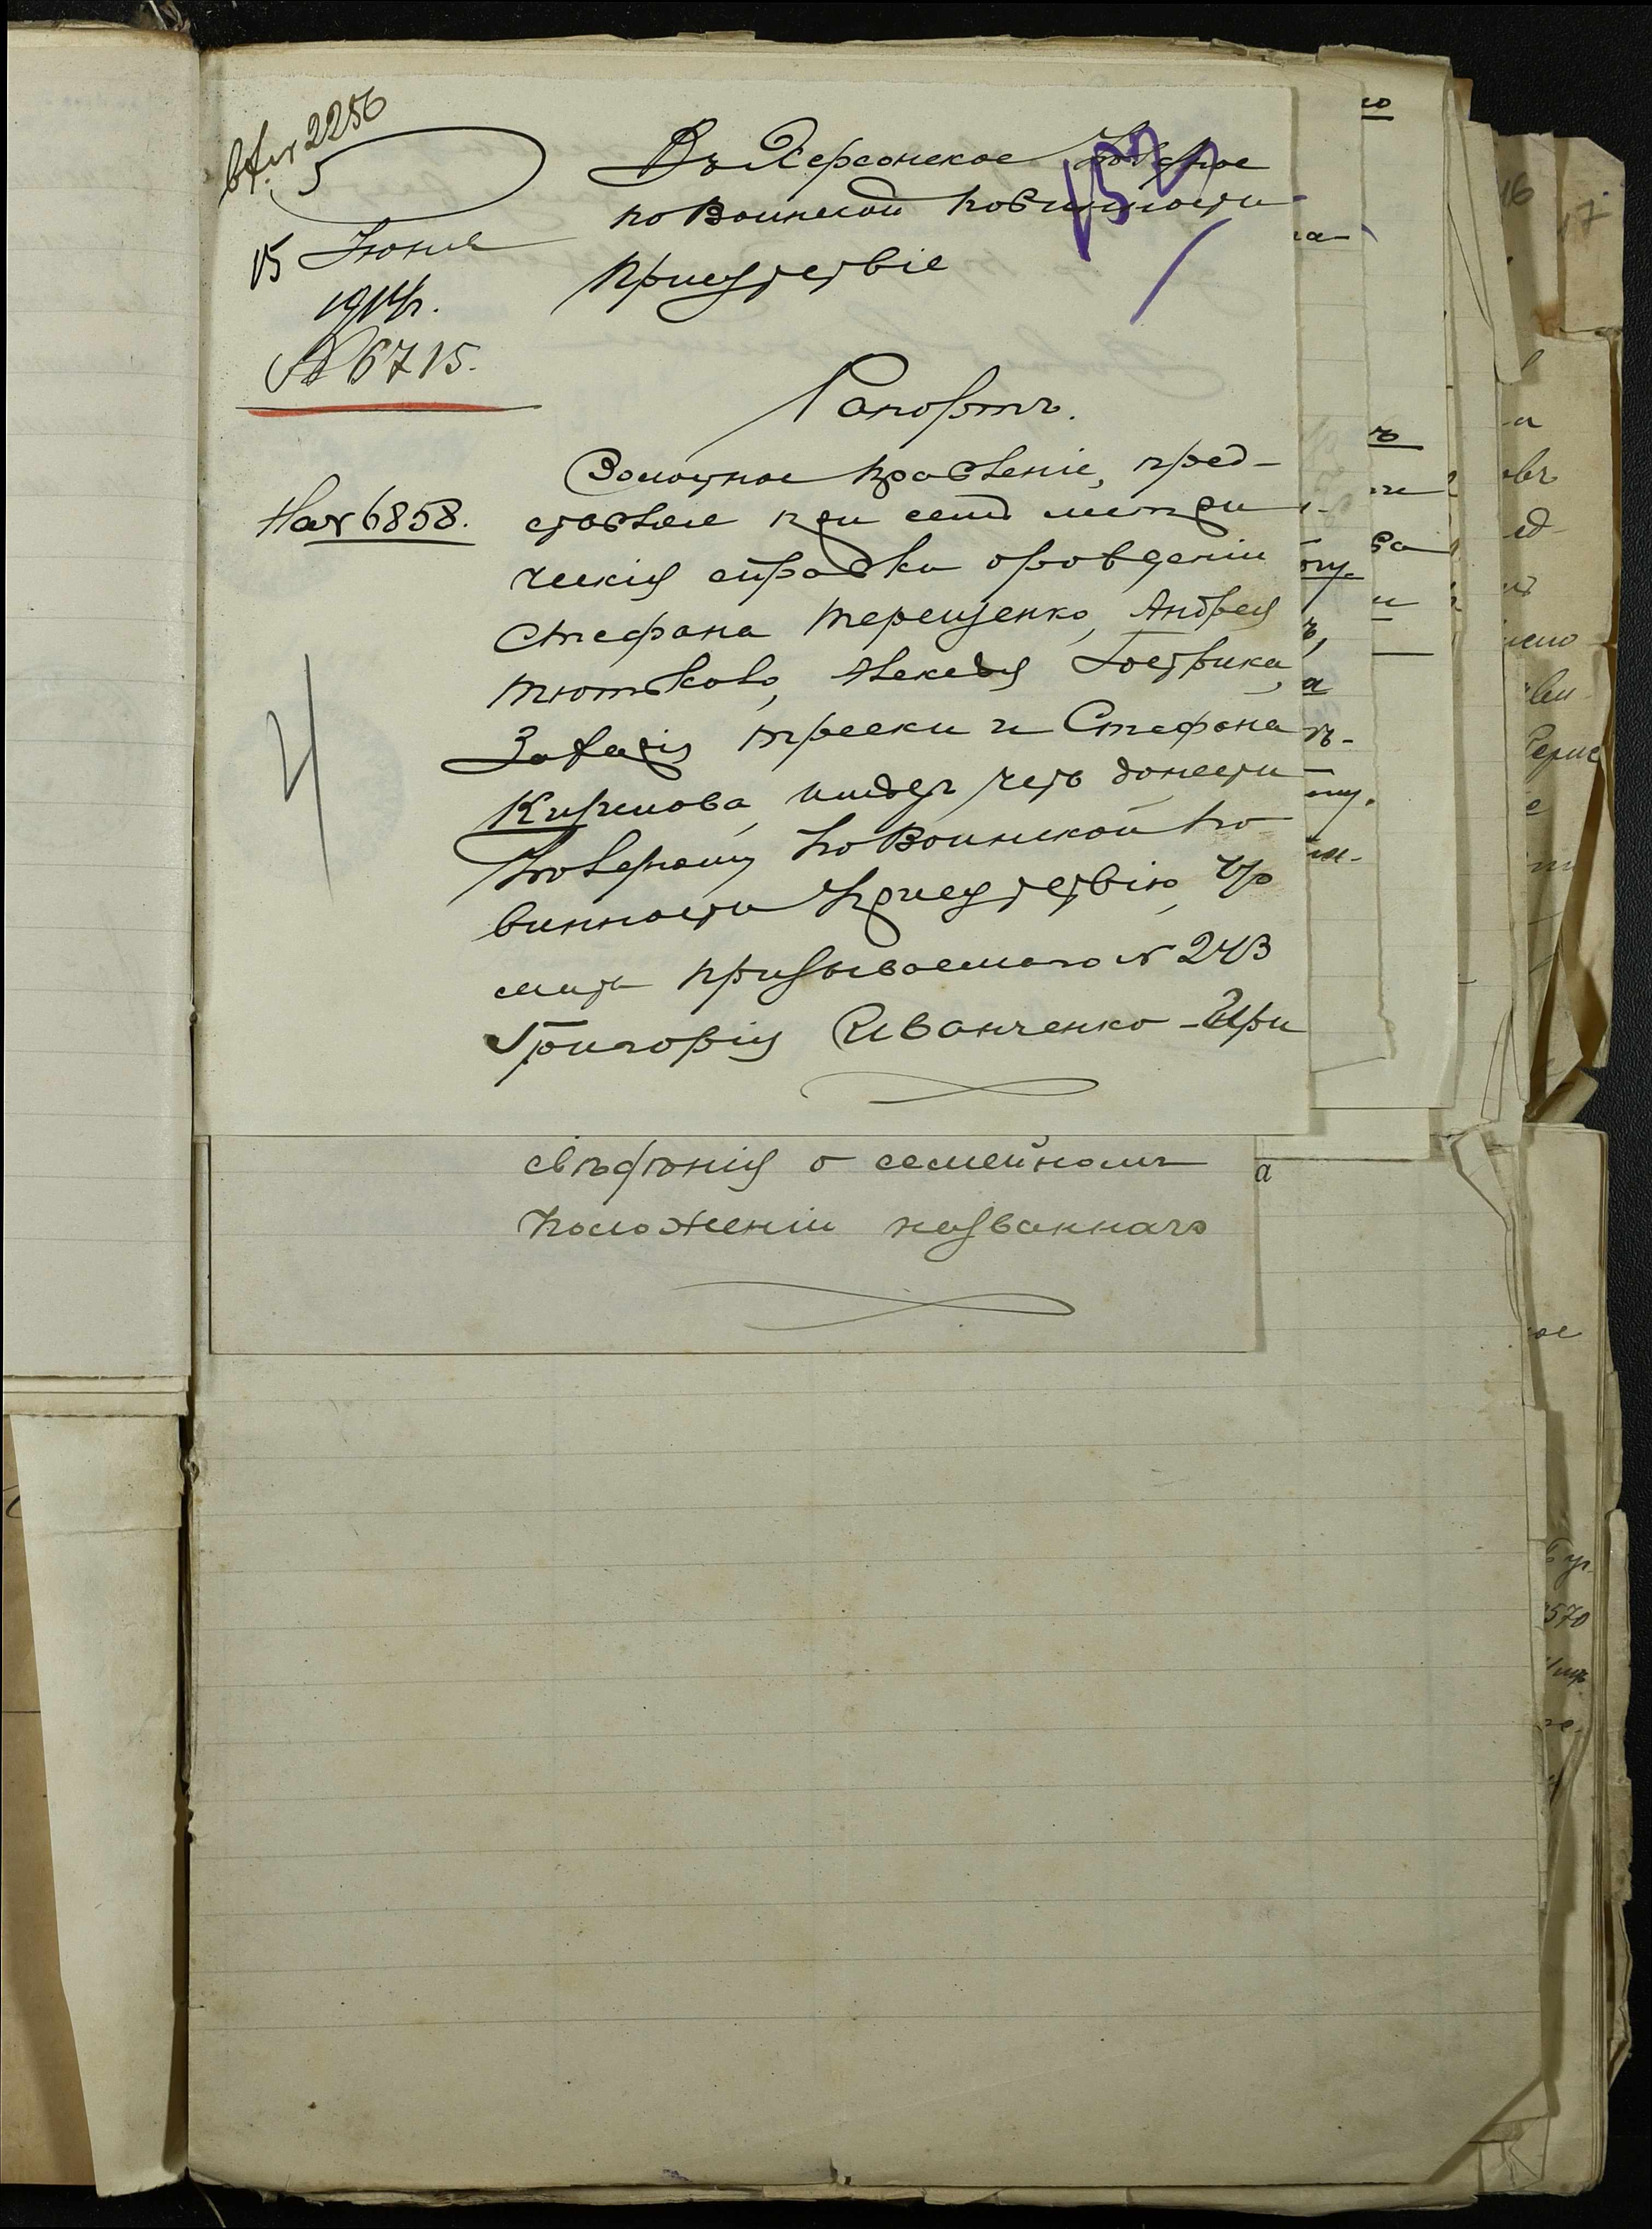 вх. № 2256
5
15 Июня
1914г.
№ 6715.
На № 6858.
4
132
Въ Херсонское Уѣздное
по Воинской повинности
Присутствіе
Рапортъ.
Волостное Правленіе, пред-
ставляя при семъ метри
ческія справки о рожденіи
Стефана Терещенко, Андрея
Тютькова, Алексѣя Гострика,
Захарія Трески и Стефана
Куримова, имѣетъ честь донести
Уѣздному по Воинской по
винности Присутствію, что
мать призываемаго № 243
Григорія Иванченко - Ири
свѣдѣнія о семейномъ
положеніи названнаго